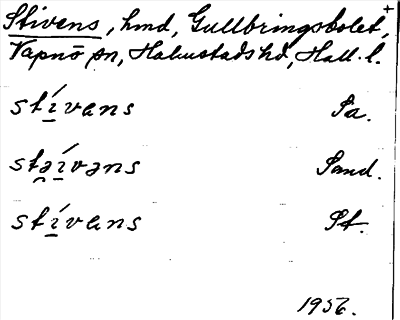 Stivens, hmd, Gullbringsbolet, +
Vapnö sn, Halmstads hd, Hall. l.
stí̱vens Pa.
stə̯í̱vəns Sand.
stí̱vens St.
1956.